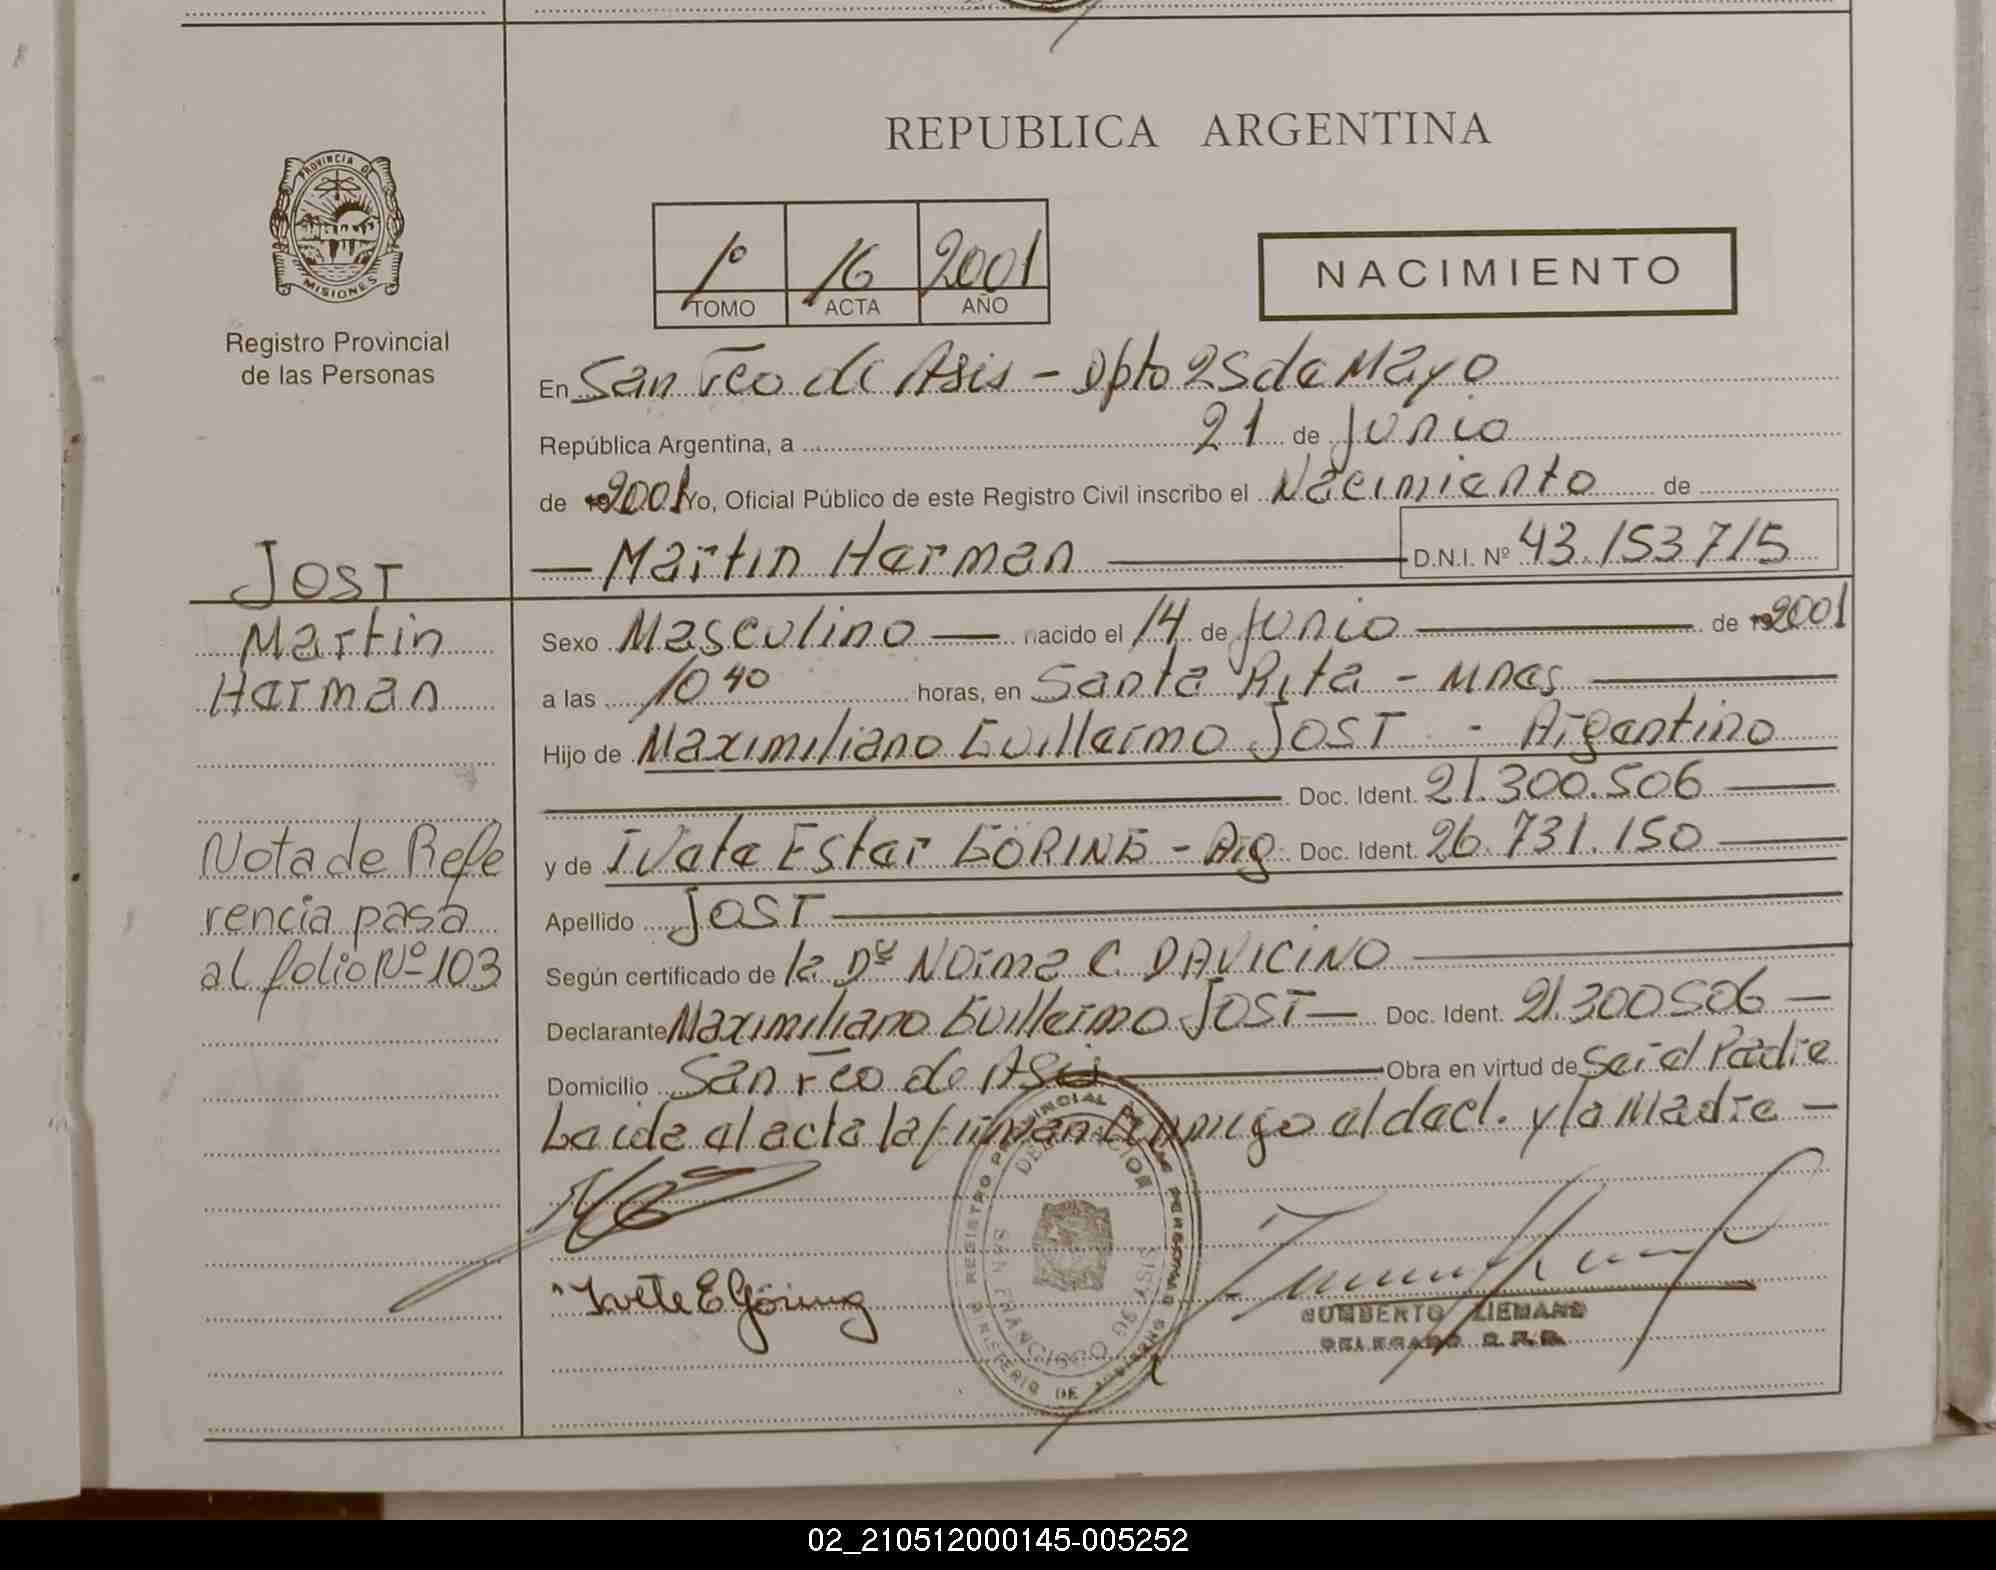 REPUBLICA ARGENTINA
PROVINCIA DE
MISIONES
Registro Provincial
de las Personas
1° 16 2001
TOMO ACTA AÑO
NACIMIENTO
En San Fco de Asis - Dpto 25 de Mayo
República Argentina, a 21 de Junio
de 2001 Yo, Oficial Público de este Registro Civil inscribo el Nacimiento de
Martin Harman D.N.I. Nº 43.153715
JOST
Martin
Harman
Sexo Masculino nacido el 14 de Junio de 2001
a las 10 40 horas, en Santa Rita - Mnes
Hijo de Maximiliano Guillermo JOST - Argentino
Doc. Ident. 21.300.506
y de Ivete Ester GÖRING - Arg Doc. Ident. 26.731.150
Nota de Refe
rencia pasa
al folio Nº 103
Apellido JOST
Según certificado de la Drª Norma C. DAVICINO
Declarante Maximiliano Guillermo JOST Doc. Ident. 21.300506
Domicilio San Fco de Asis Obra en virtud de Ser el Padre
Leida el acta la firman conmigo el decl. y la Madre
Ivete E Göring
HUMBERTO ZIEMANN
DELEGADO
REGISTRO PROVINCIAL DE LAS PERSONAS
DELEGACION
SAN FRANCISCO DE ASIS
MINISTERIO DE GOBIERNO
02_210512000145-005252